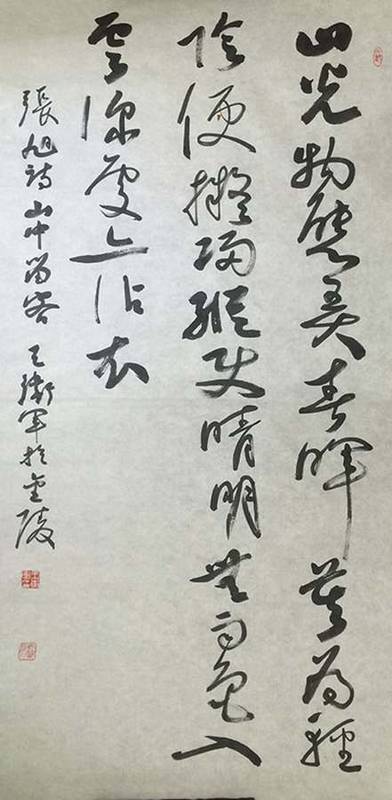 山光物態弄春暉莫為輕
陰便擬歸縱使晴明無雨色入
雲深處亦沾衣
張旭詩山中留客王衛軍於金陵